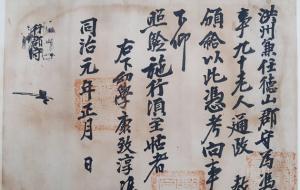 洪州兼任德山郡守爲馮
事九十老人通政
頒給以此憑考向事
下仰
照驗施行須至帖者
右下幼學康致淳
同治元年正月 日
行郡守